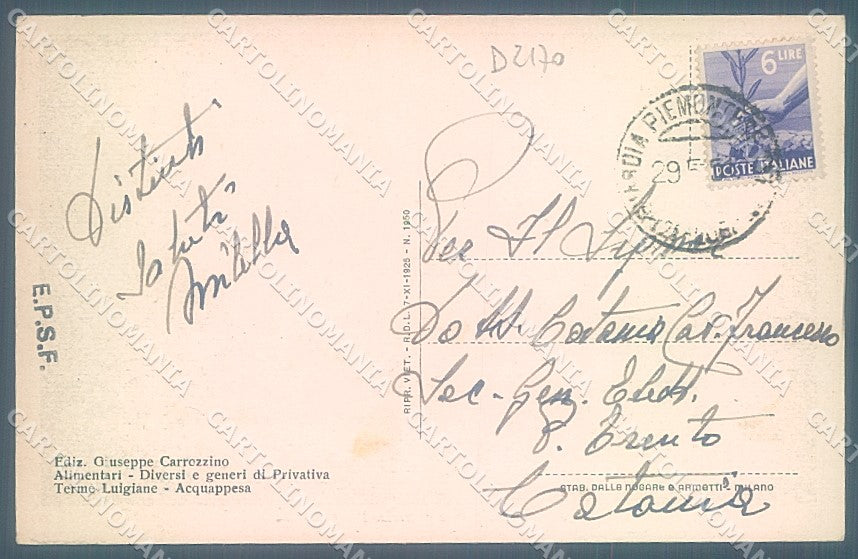 D2170
6 LIRE
POSTE ITALIANE
GUARDIA PIEMONTESE
29
Distinti
Saluti
E.P.S.F.
Per Il Signore
Dott. Catania Cav. Francesco
Sec. Gen. Elett.
P. Trento
Catania
RIPR. VIET. - R.D.L. 7-XI-1925 - N. 1950
Ediz. Giuseppe Carrozzino
Alimentari - Diversi e generi di Privativa
Terme Luigiane - Acquappesa
STAB. DALLE NOGARE e ARMETTI - MILANO
CARTOLINOMANIA